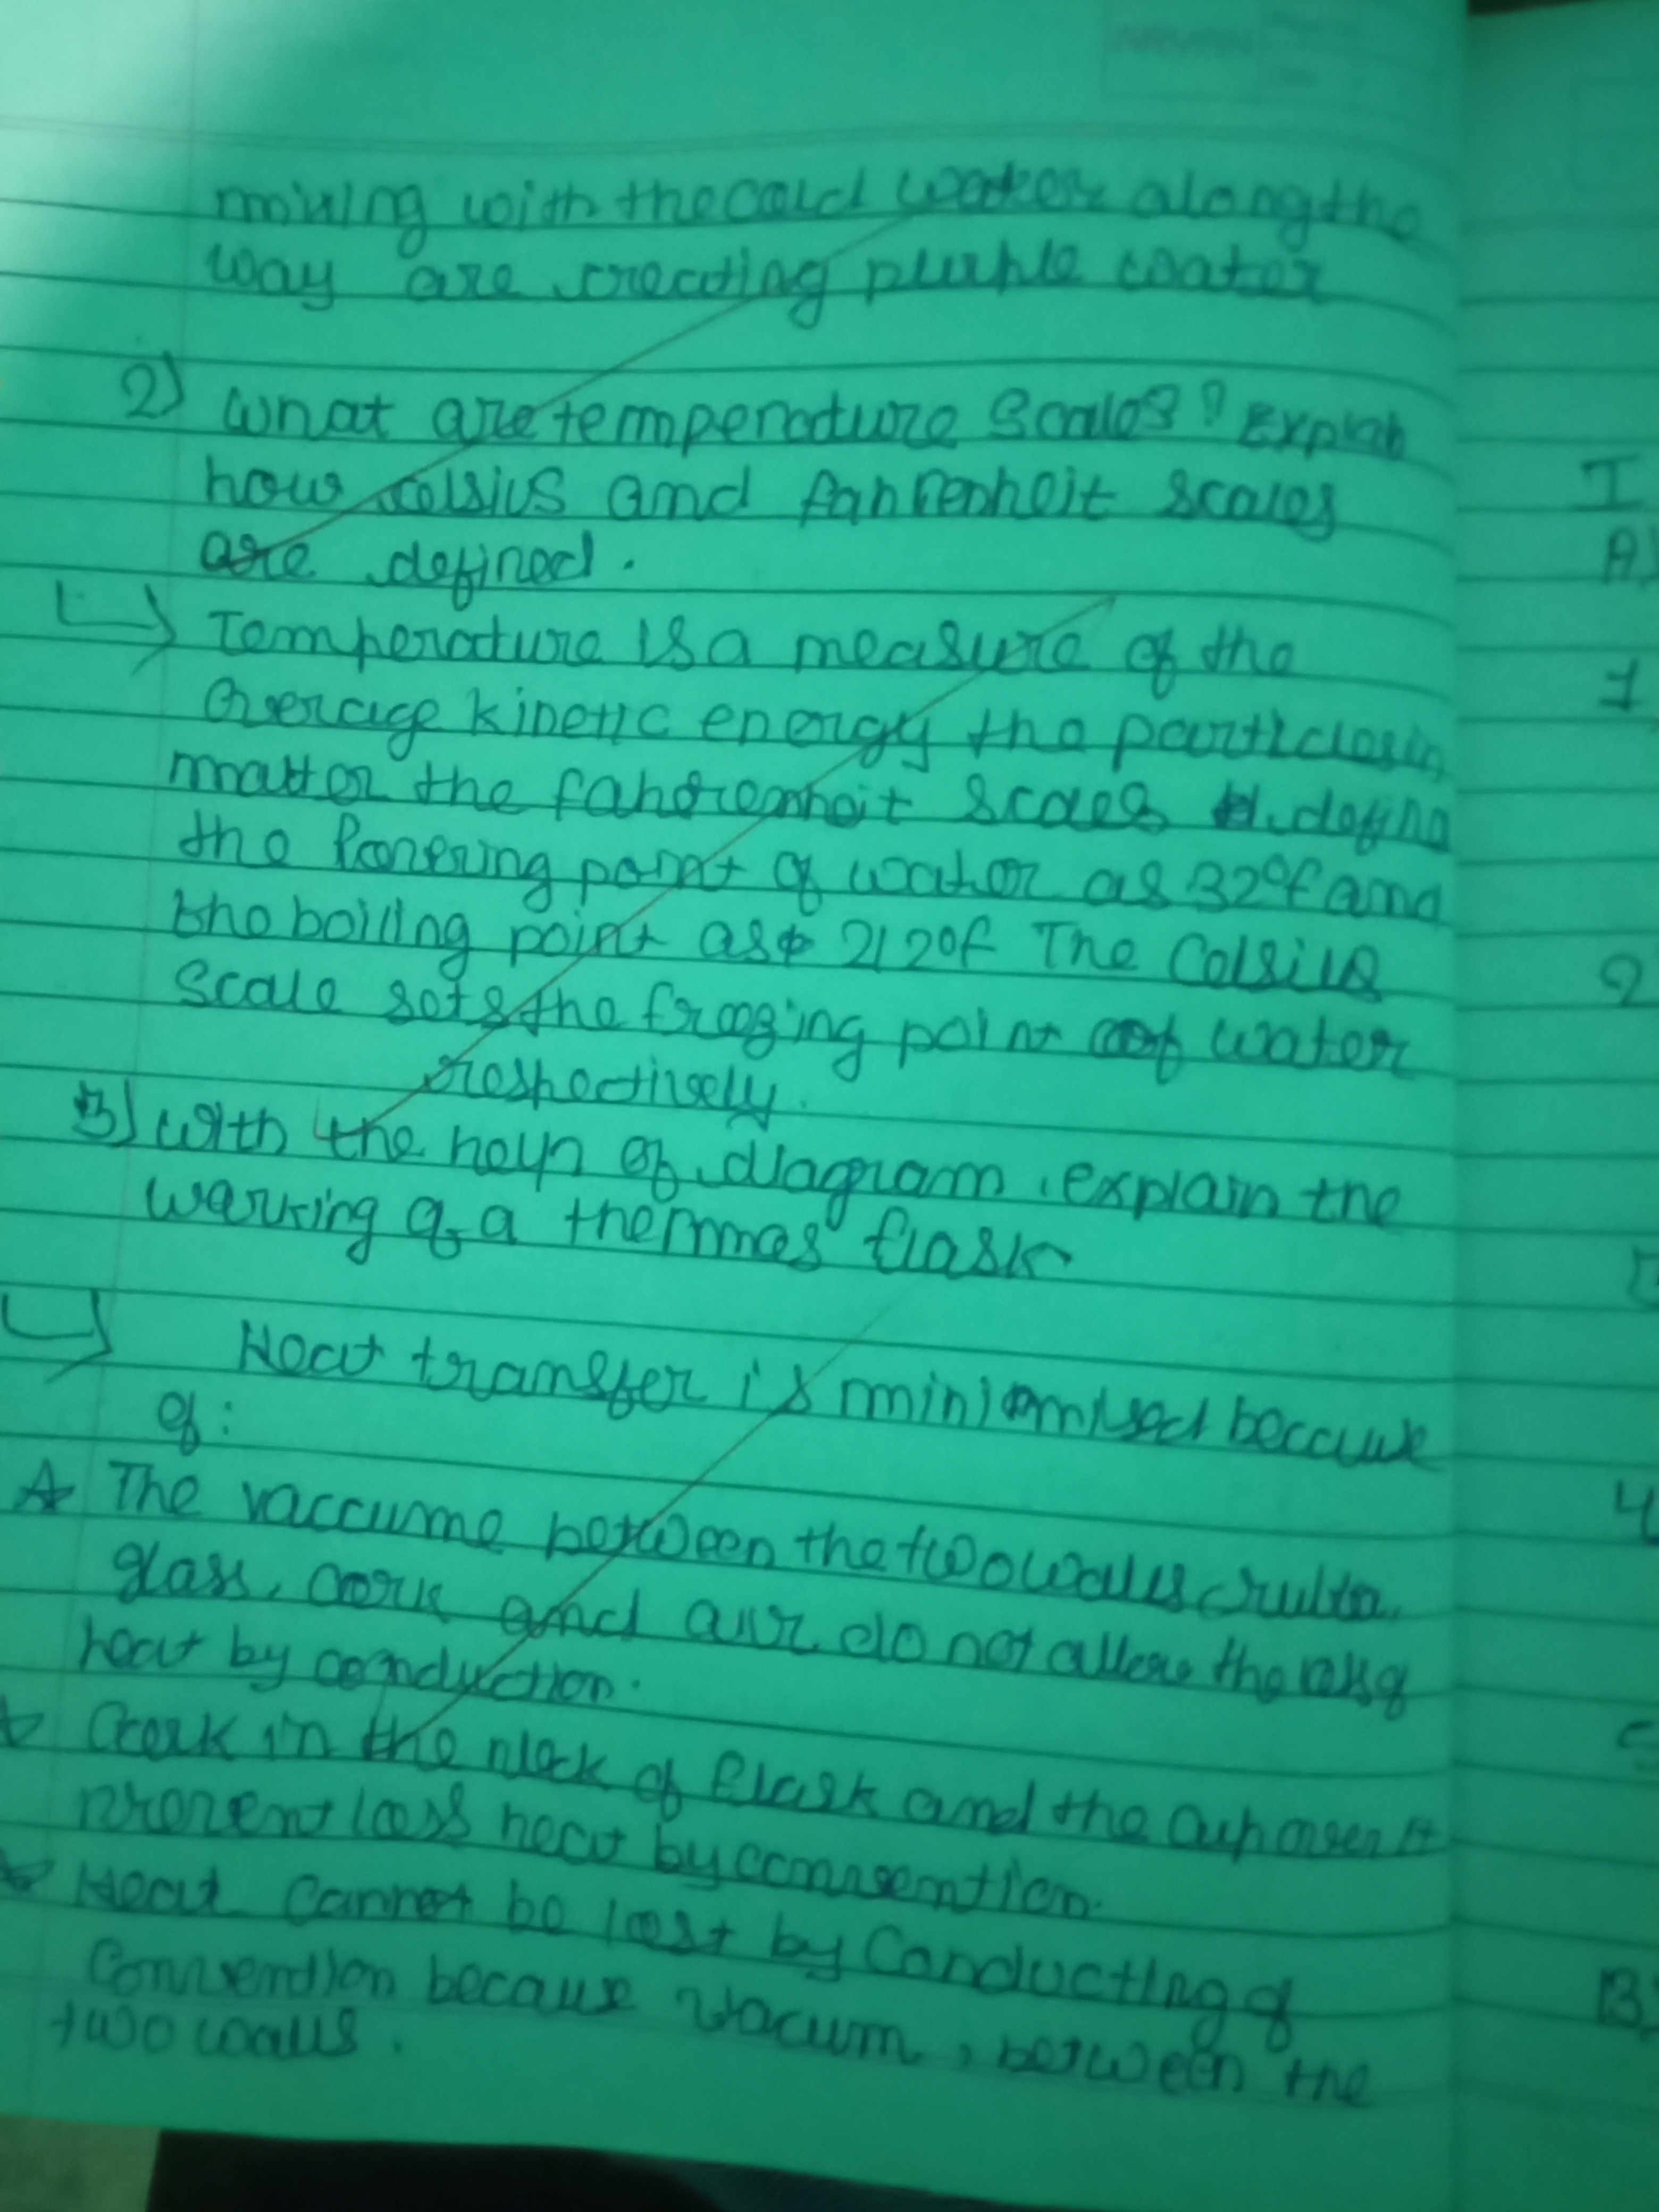 mixing with the cold water along the
way are creating purple water
2) What are temperature scales? Explain
how celsius and fahrenheit scales
are defined.
Temperature is a measure of the
average kinetic energy the particles in
matter the fahdrenheit scales define
the point of water as 32°f and
the boiling point as 212°f The Celsius
Scale sets the freezing point of water
respectively.
3) With the help of diagram, explain the
working of a thermos flask
Heat transfer is minimised because
of:
The vaccume between the two walls
glass, cork and air do not allow the of
heat by conduction.
Cork in the neck of flask and the cup over it
prevent loss heat by convention.
Heat cannot be lost by Conducting of
Convention because vacum, between the
two walls.
I
A)
1
2
4
5
B)